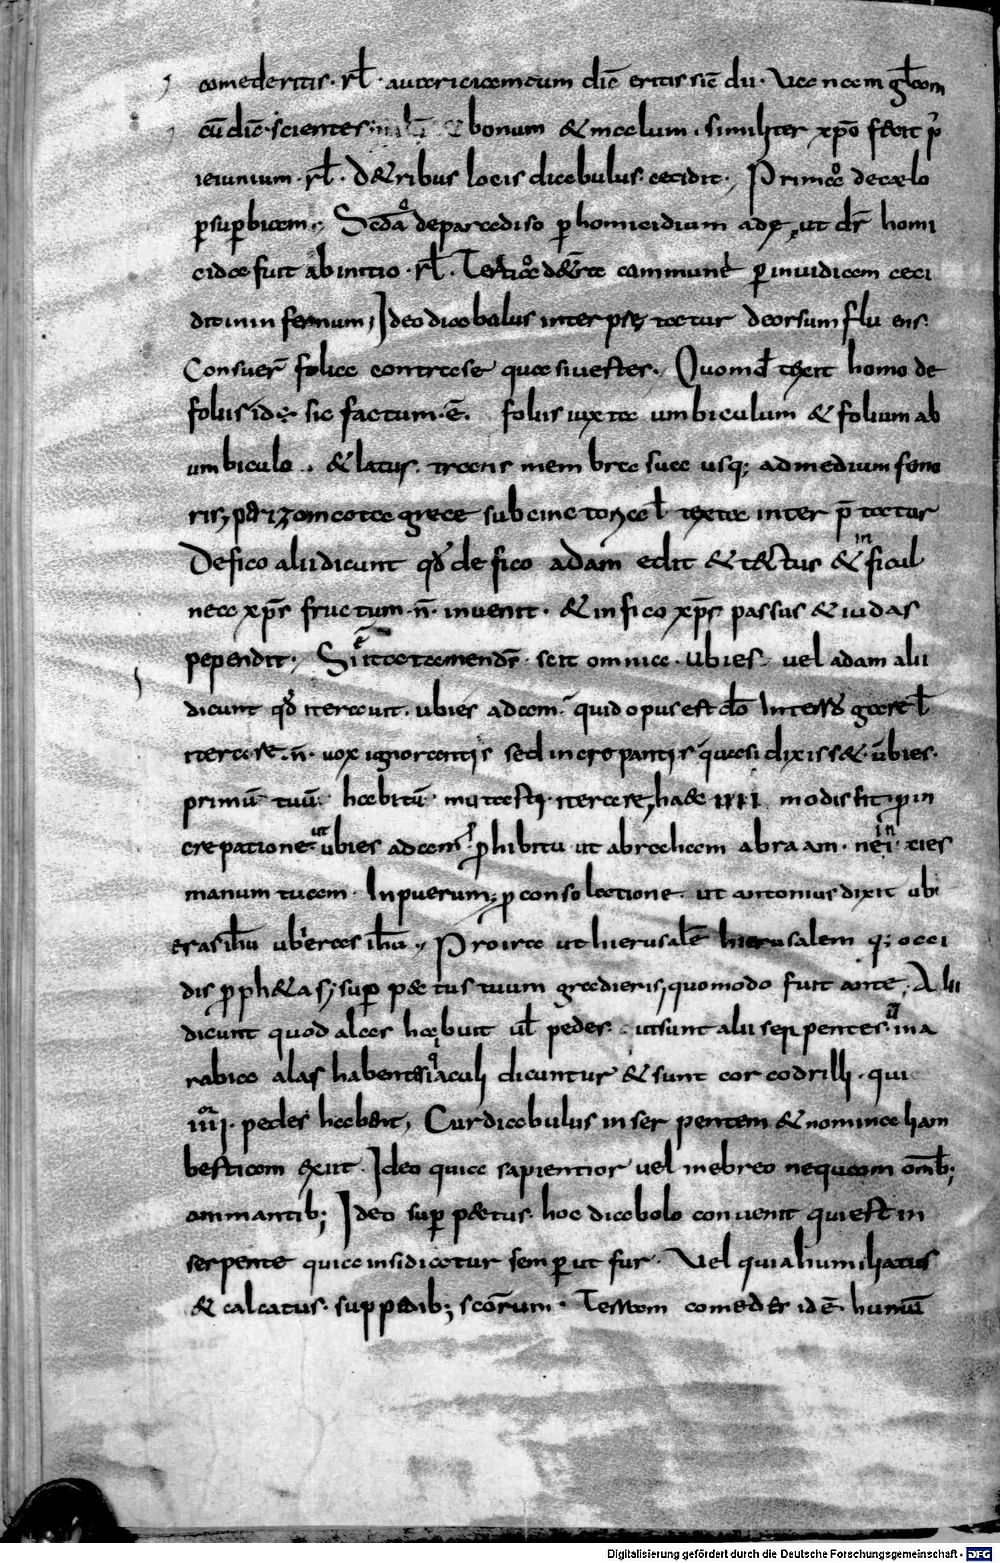 comederitis· rł· auariciam cum diē eritis siē dii· Uanam głam
cū diē· scientes & bonum & malum· similiter xp̄o fecit p̄
ieiunium· rł· D&ribus locis diabulus· cecidit· Primoͦ de cælo
ꝑ suꝑbiam·, Sedāͦ de paradiso ꝑ homicidium adę, ut dr̄ homi
cida fuit ab initio· rł· Tertiaͦ de commune ꝑ inuidiam ceci
dit in infernum; Ideo diabolus interp̄& tatur deorsum flu ens·
Consuer̄ folia contra se qua siuestes·, Quomđ texit homo de
foliis id ē· sic factum·ē· foliis iuxta umbiculum & folium ab
umbiculo·, & latus· trans membra sua usq; ad medium femo
ris; perizomata grece subcinctoria ł texta inter p̄ tatur
De fico alii dicunt qđ de fico adam edit & tectus & in ficul
nea xp̄s fructum·n̄· inuenit· & in fico xp̄s passus & iudas
pependit·, Si ita tamen dr̄· scit omnia· Ubi es· uel adam alii
dicunt qđ iterauit· ubi es adam· quid opus est dō Interrogare ł
iterare·n̄· uox ignorantis sed increpantis quasi dixiss&· ubi es·
primū tuū· habitū· mutasti· iterare, haec IIII modis fit ꝓ in
crepatione ut ubi es adam·, ꝓhibitu ut abracham abraam· ne in icies
manum tuam· In puerum; ꝓ consolatione· ut antonius dixit ubi
eras ihū ubi eras ihū·, Pro ira ut hierusalē hierusalem q; occi
dis ꝓph&as; suꝑ pectus tuum gradieris; quomodo fuit ante, Alii
dicunt quod alas habuit uł pedes· ut sunt alii serpentes in a
rabia alas habentes qͥ iaculi dicuntur & sunt corcodrilli· qui
IIIIor· pedes habent, Cur diabulus in serpentem & non in aliam
bestiam exiit· Ideo quia sapientior uel in ebreo nequam omīb;
animantib; Ideo suꝑ pectus· hoc diabolo conuenit qui est in
serpente quia insidiatur semꝑ ut fur· Uel quia humiliatus
& calcatus· sup pedib; scōrum· Terram comeder id ē humū
Digitalisierung gefördert durch die Deutsche Forschungsgemeinschaft - DFG